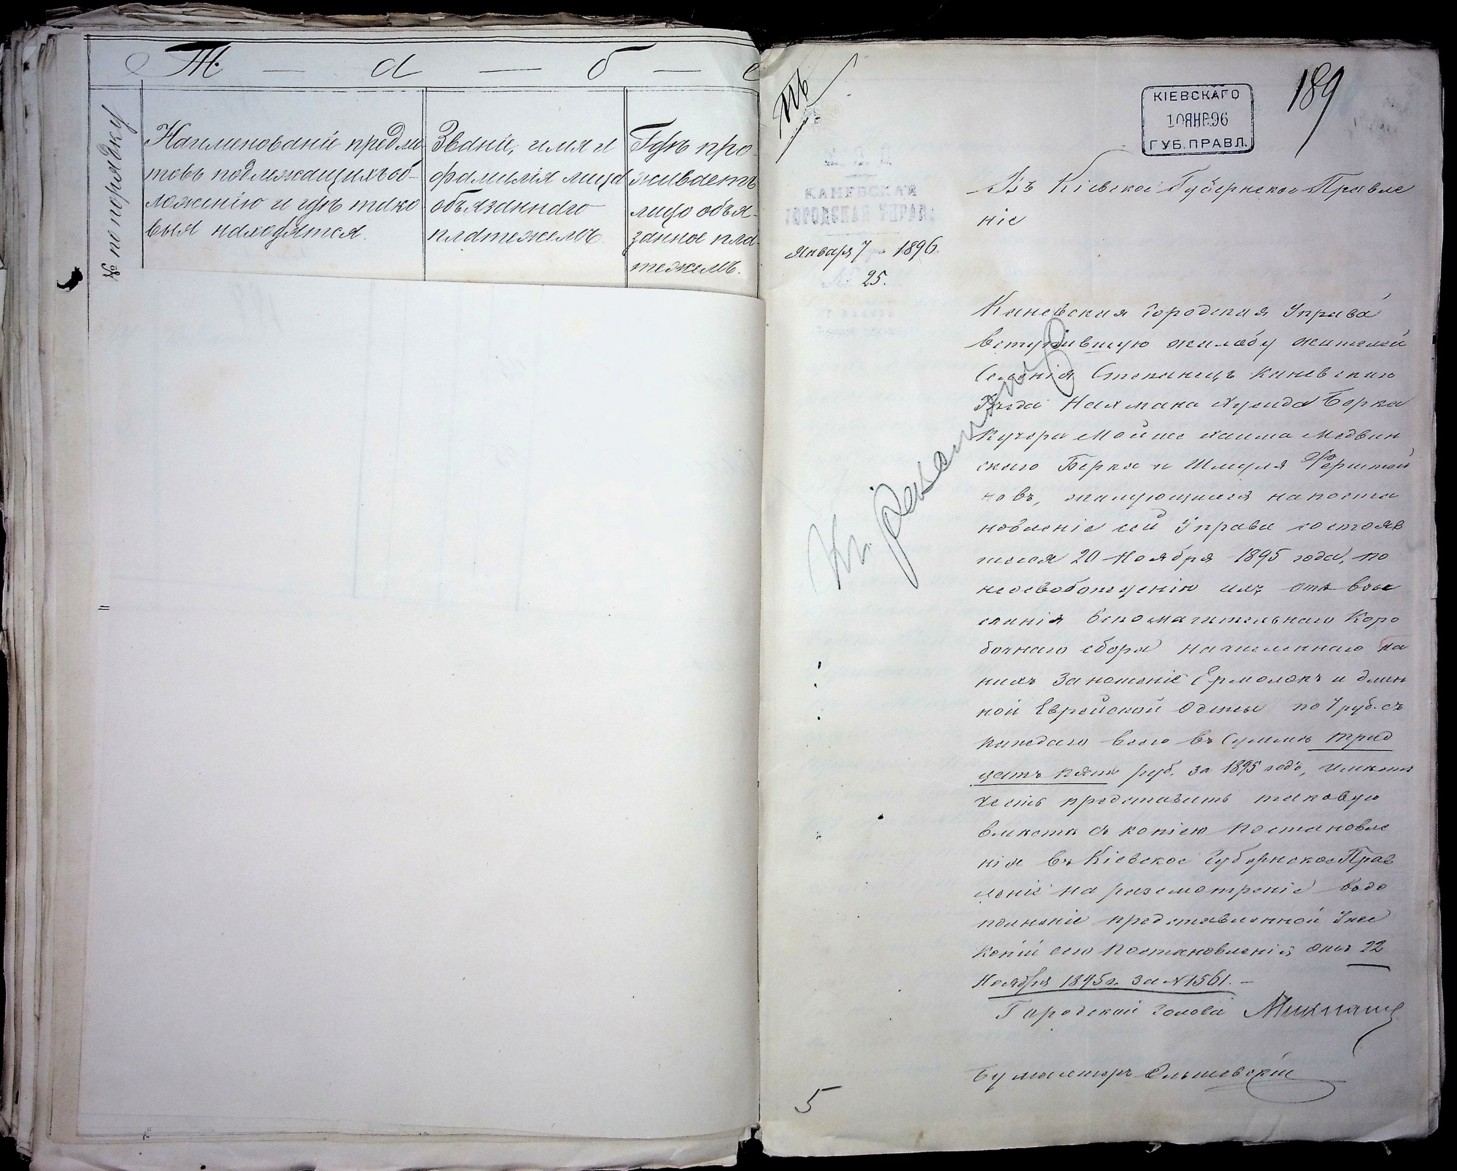 Т — а — б — е
№ по порядку
Наименованіе предме
товъ подлежащихъ об-
ложенію и гдѣ тако
выя находятся.
Званіе, имя и
фамилія лица
обязаннаго
платежемъ.
Гдѣ про-
живаетъ
лицо обя-
занное пла-
тежемъ.
189
КІЕВСКАГО
10 ЯНВ. 96
ГУБ. ПРАВЛ.
М. В. Д.
КАНЕВСКАЯ
ГОРОДСКАЯ УПРАВА
Января 7 1896
№ 25.
Въ Кіевское Губернское Правле
ніе
Каневская Городская Управа
вступившую жалобу жителей
Селенія Степанецъ Каневскаго
уѣзда Нахмана Дувида Берка
Кучера Мойше Хаима Медвин
скаго Берка и Шмуля Ферштей
новъ, жалующихся на поста
новленіе сей Управы состояв
шееся 20 Ноября 1895 года, по
неосвобожденію ихъ отъ взы
сканія вспомагательнаго Коро
бочнаго сбора начисленнаго на
нихъ за ношеніе Ермолокъ и длин
ной Еврейской Одежды по 7 руб. съ
каждаго всего въ Суммѣ трид
цать пять руб. за 1895 годъ, имѣетъ
честь представить таковую
вмѣстѣ съ копіею Постановле
нія въ Кіевское Губернское Прав
леніе на разсмотрѣніе въ до
полненіе представленной уже
копіи сего Постановленія отъ 22
Ноября 1895 г. за № 1561. —
Городской Голова
Бухгалтеръ Ольшевскій
5